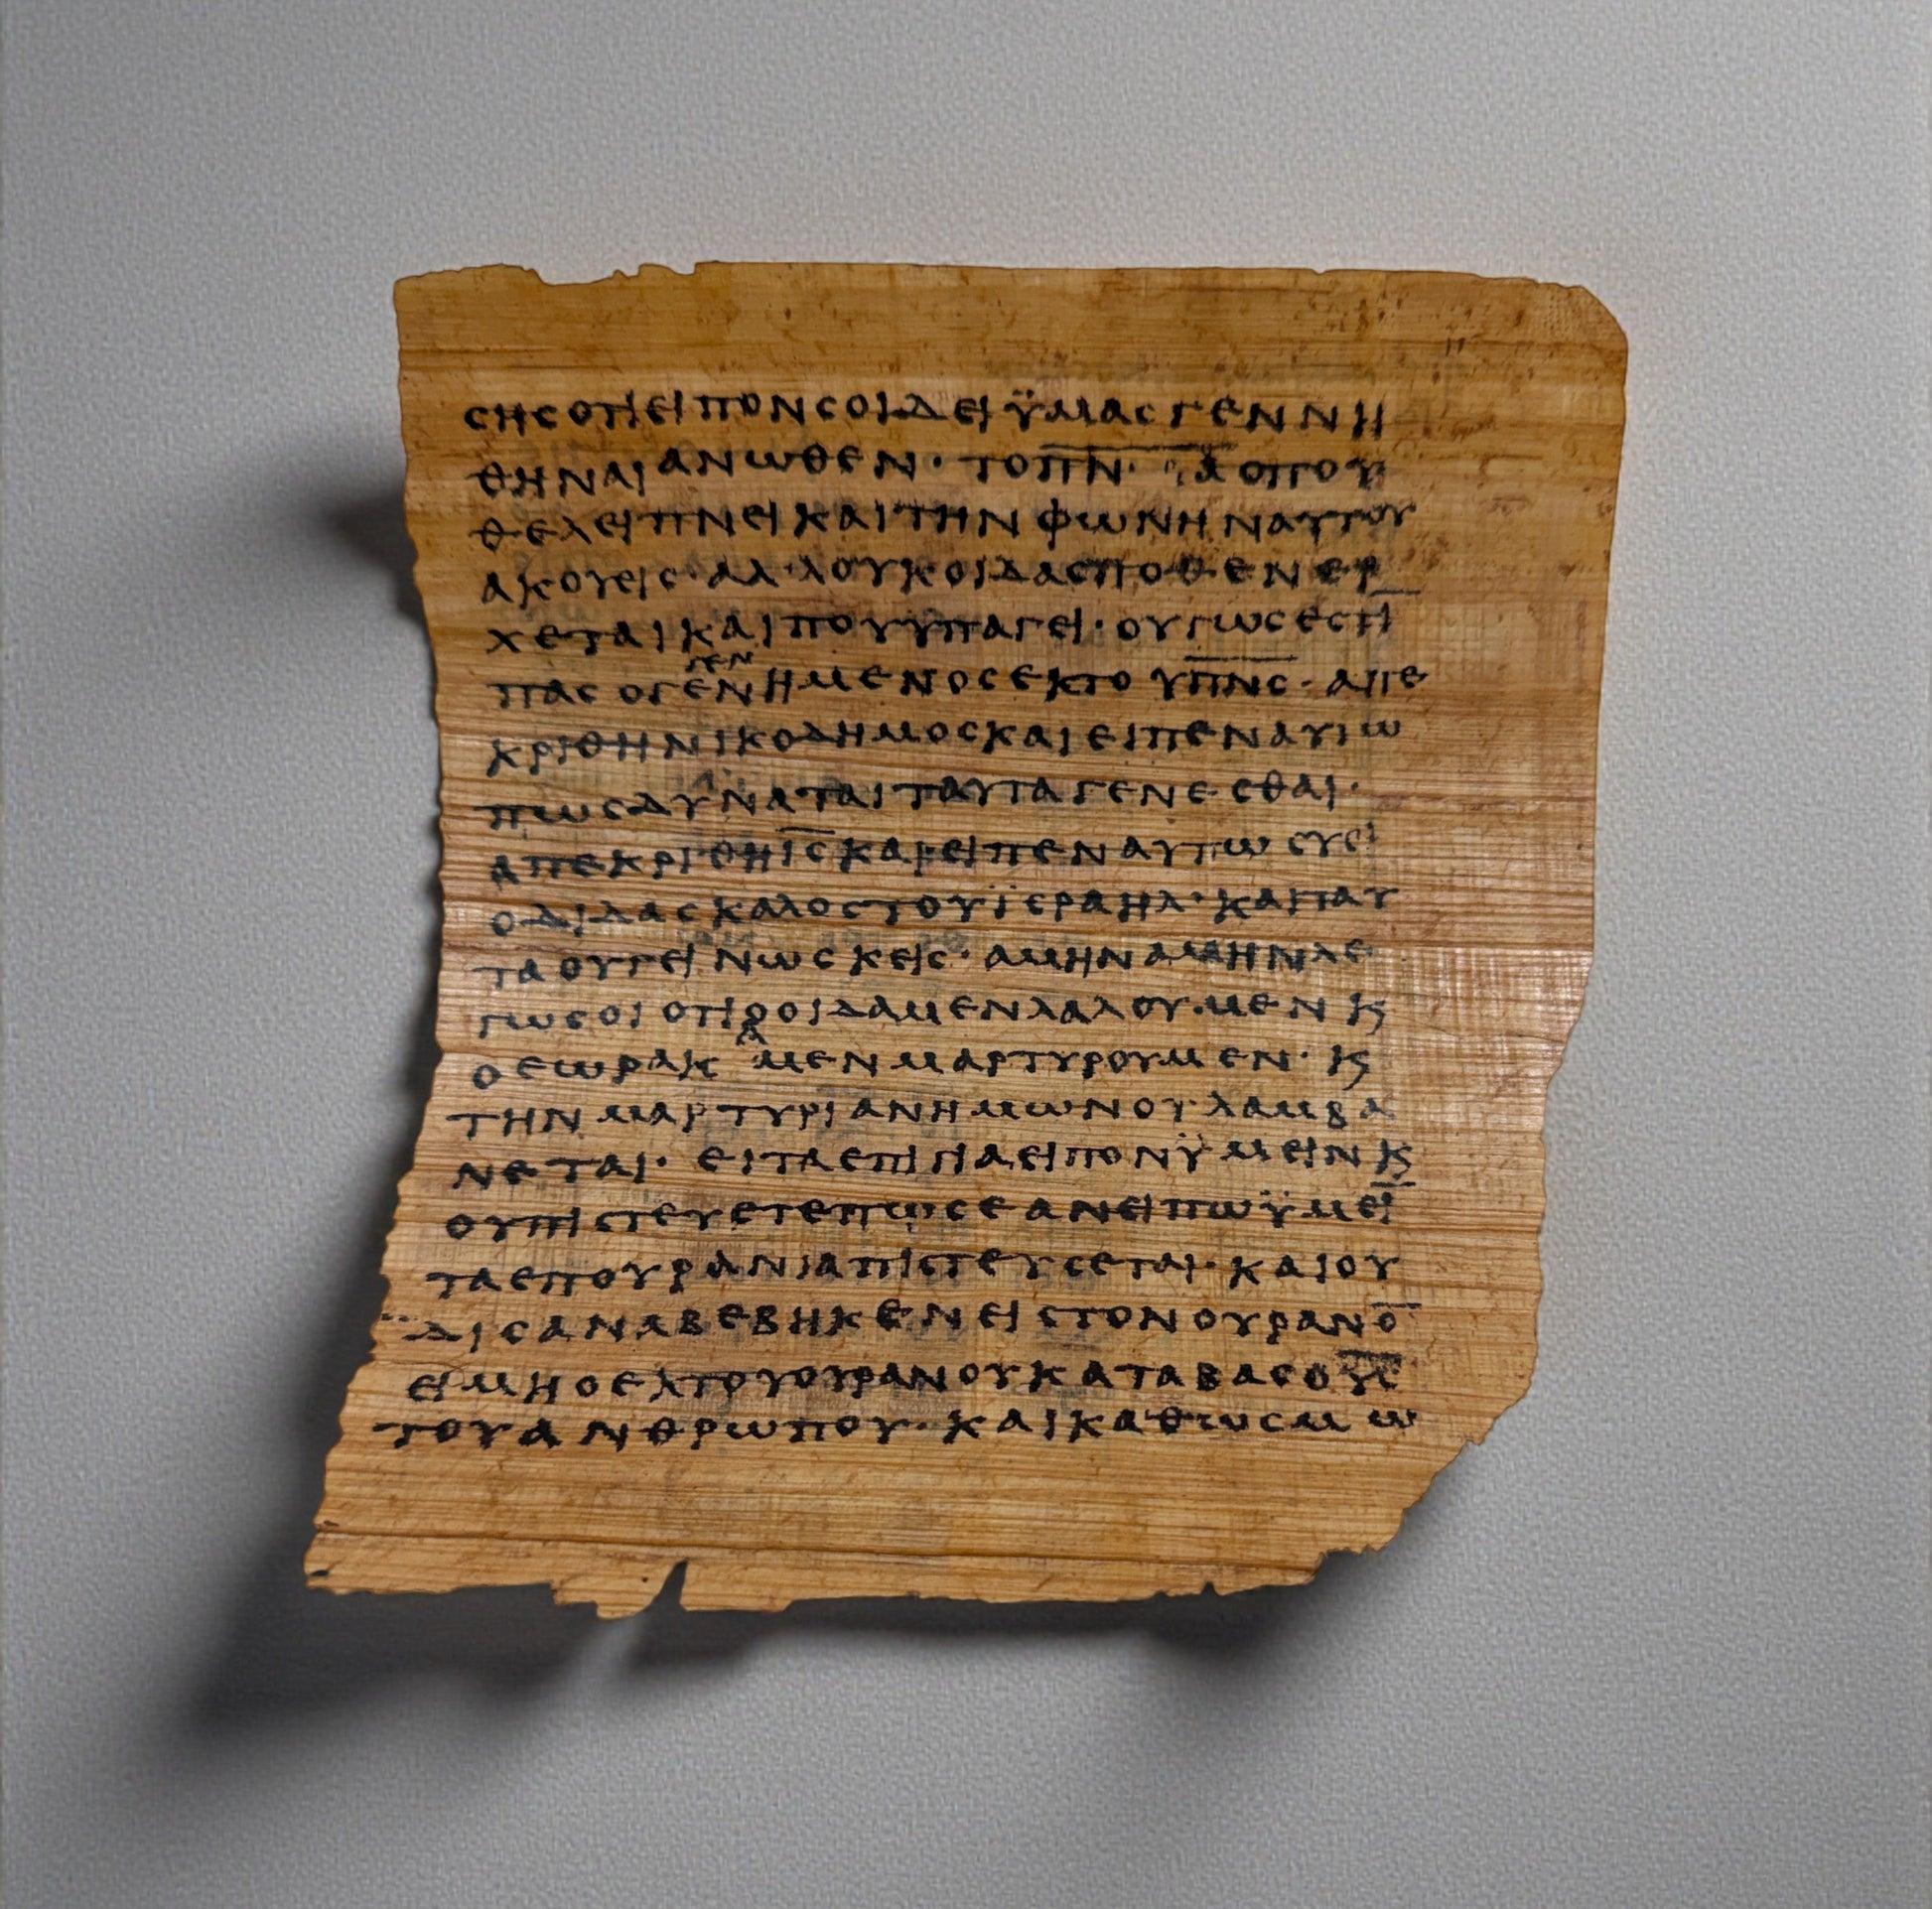 ϲηϲοτιειπονϲοιδειϋμαϲγεννη
θηναιανωθεν· το π̅ν̅α̅ οπου
θελειπνεικαιτηνφωνηναυτου
ακουειϲ·αλ·λουκοιδαϲποθενερ
χεταικαιπουϋπαγει·ουτωϲεϲτι̅
παϲογε`γεν´νημενοϲεκτουπ̅ν̅ϲ̅·απε
κριθηνικοδημοϲκαιειπεναυτω
πωϲδυναταιταυταγενεϲθαι·
απεκριθηι̅ϲ̅καιειπεναυτωϲυει
οδιδαϲκαλοϲτουϊϲραηλ·καιταυ
ταουγεινωϲκειϲ·αμηναμηνλε
γωϲοιοτιοοιδαμενλαλουμενκ̣
οεωρακ`α´μενμαρτυρουμεν·κ̣
τηνμαρτυριανημωνουλαμβα
νεται· ειταεπιγιαειπονϋμεινκ̣
ουπιϲτευετεπωϲεανειπωϋμει̅
ταεπουρανιαπιϲτευϲεται·καιου
διϲαναβεβηκενειϲτονουρανο̅
ειμηοεκτουουρανουκαταβαϲου̅ϲ̅
τουανθρωπου·καικαθωϲμω